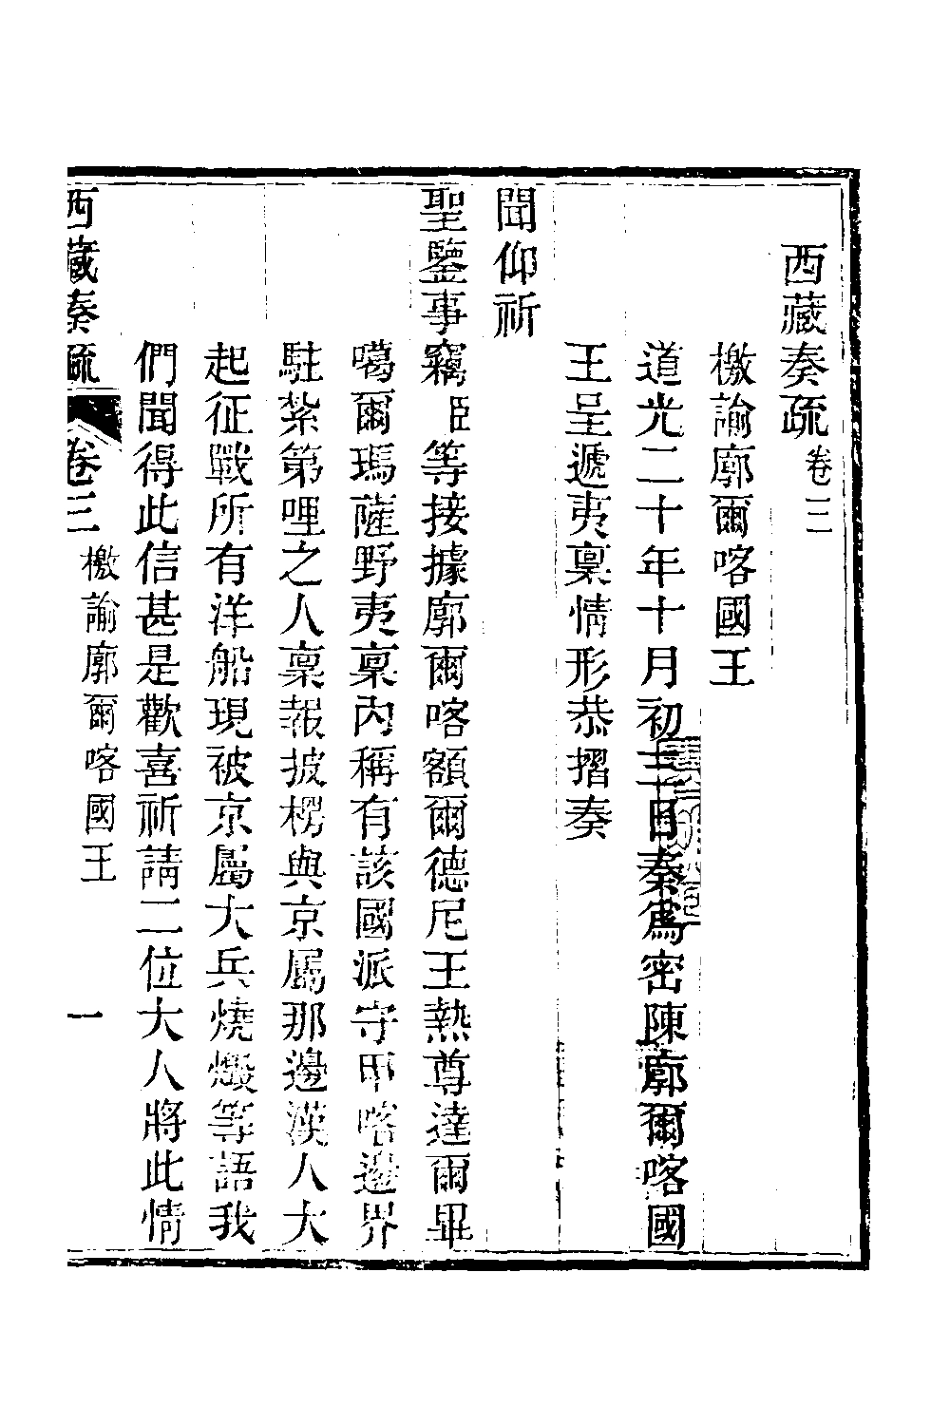 西藏奏疏卷三
檄諭廓爾喀國王
道光二十年十月初三日奏爲密陳廓爾喀國
王呈遞夷稟情形恭摺奏
聞仰祈
聖鑒事竊臣等接據廓爾喀額爾德尼王熱尊達爾畢
噶爾瑪薩野夷稟內稱有該國派守甲喀邊界
駐紮第哩之人稟報披楞與京屬那邊漢人大
起征戰所有洋船現被京屬大兵燒燬等語我
們聞得此信甚是歡喜祈請二位大人將此情
西藏奏疏 卷三 檄諭廓爾喀國王 一